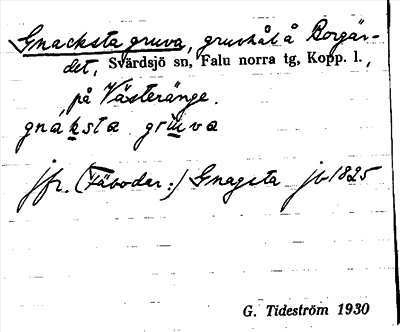 Gnacksta gruva, gruvhål å Borgär-
det, Svärdsjö sn, Falu norra tg, Kopp. l.,
på Västeränge.
gnaksta gruva
jfr. (Fäbodar:) Gnagsta jb 1825
G. Tideström 1930